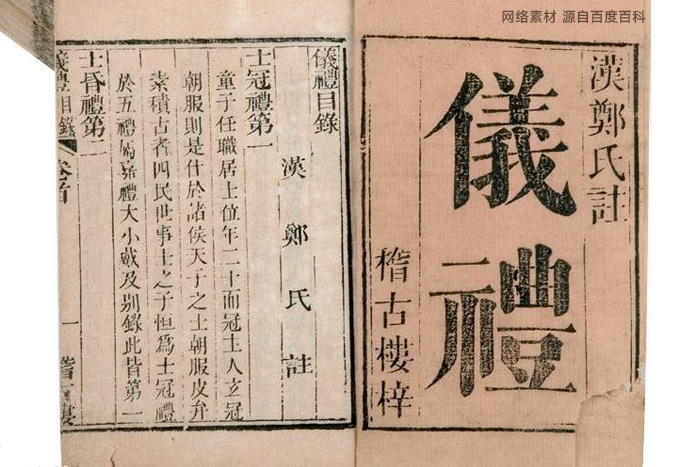 网络素材 源自百度百科
漢鄭氏註
儀禮
稽古樓梓
儀禮目錄
漢鄭氏註
士冠禮第一
童子任職居士位年二十而冠主人玄冠
朝服則是仕於諸侯天子之士朝服皮弁
素積古者四民世事士之子恒爲士冠禮
於五禮屬嘉禮大小戴及别錄此皆第一
士昏禮第二
儀禮目錄
卷首
一
稽古樓